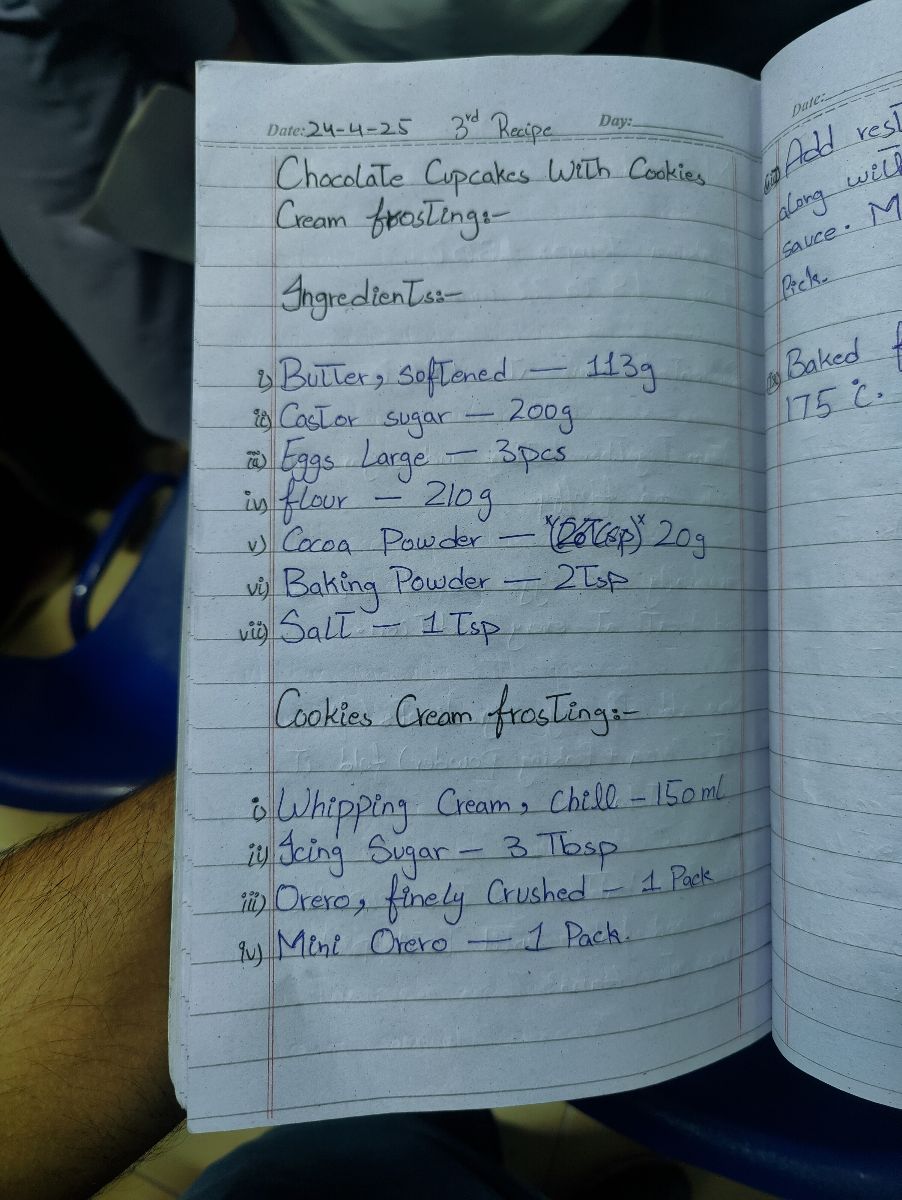 Date: 24-4-25 3rd Recipe Day:
Chocolate Cupcakes With Cookies
Cream frosting:-
Ingredients:-
i) Butter, softened — 113g
ii) Castor sugar — 200g
iii) Eggs Large — 3pcs
iv) flour — 210g
v) Cocoa Powder — 20g
vi) Baking Powder — 2Tsp
vii) Salt — 1 Tsp
Cookies Cream frosting:-
i) Whipping Cream, Chill - 150ml
ii) Icing Sugar - 3 Tbsp
iii) Orero, finely Crushed - 1 Pack
iv) Mini Orero — 1 Pack.
Date:
Add rest
along with
sauce. M
Pick.
Baked f
175°c.